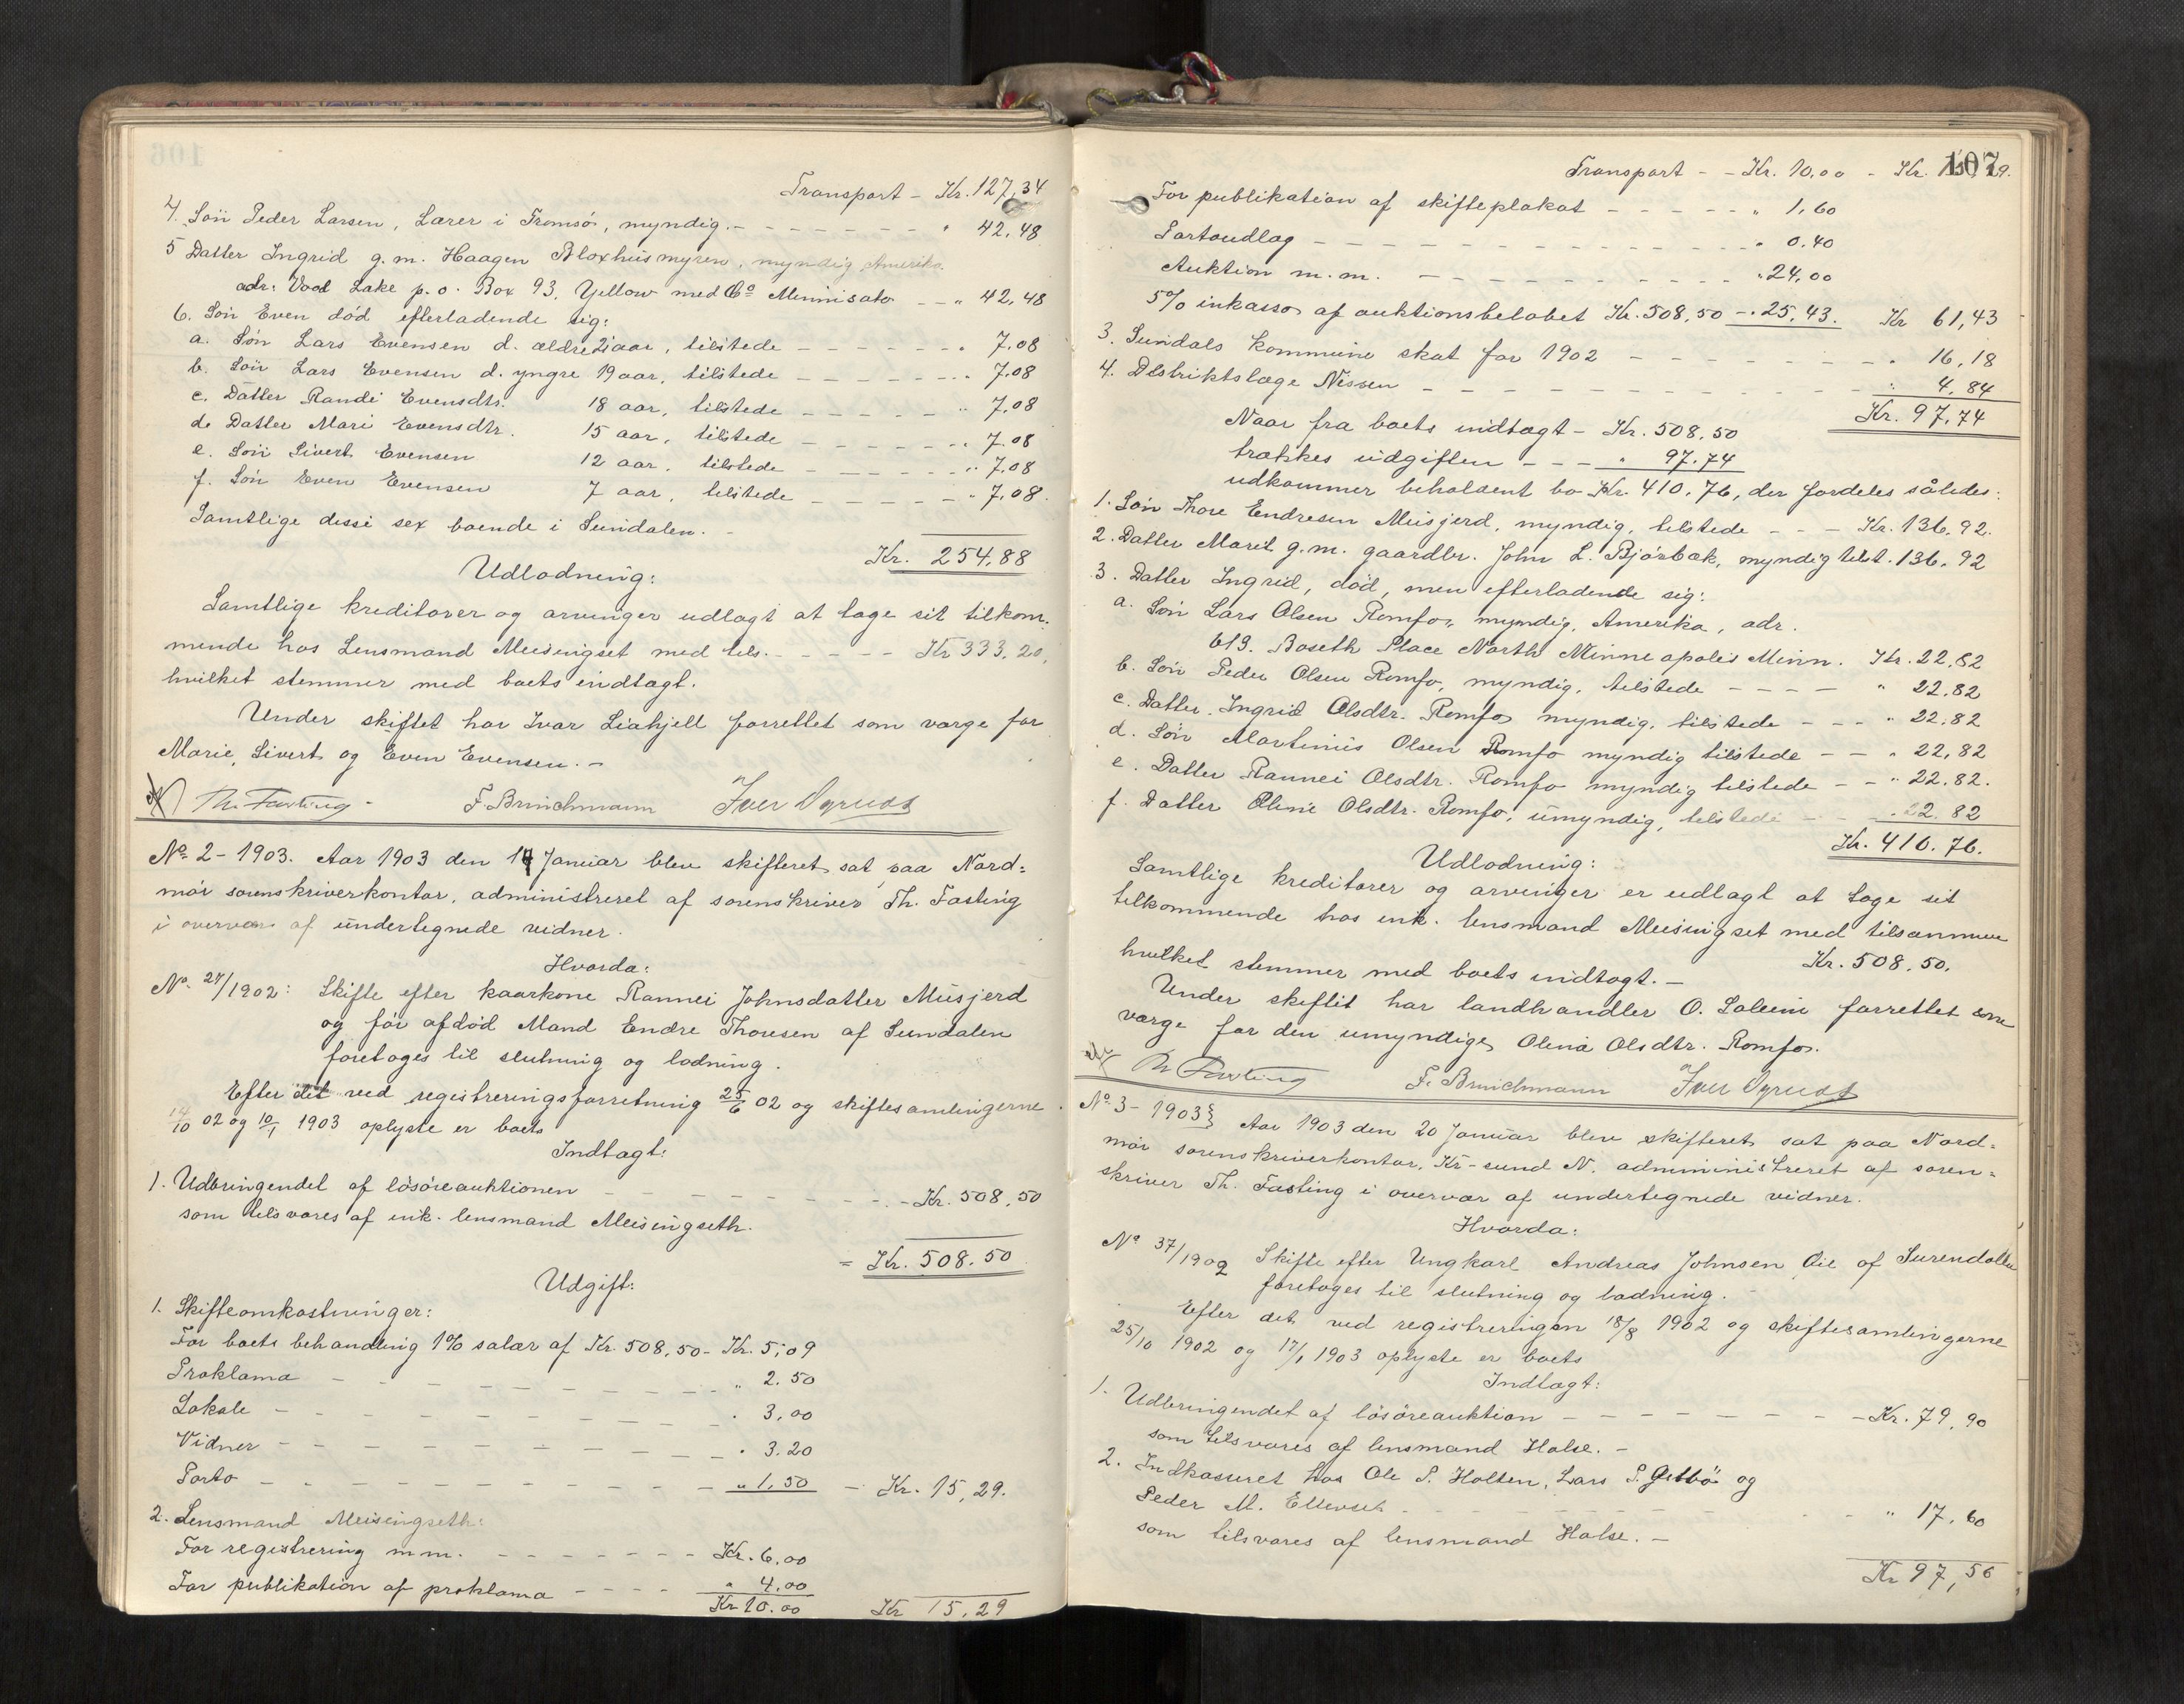 Transport - Kr. 127,34
4. Søn Peder Larsen, Lærer i Tromsø, myndig. - - - - - - - " 42,48
5 Datter Ingrid g.m. Haagen Bloxhusmyren, myndig Amerika.
adr: Vood Lake p.o. Box 93. Yellow med Co Minnisota - - " 42,48
6. Søn Even død efterladende sig:
a. Søn Lars Evensen d. ældre 21 aar, tilstede - - - - - - " 7.08
b. Søn Lars Evensen d. yngre 19 aar, tilstede - - - - - - " 7.08
c. Datter Randi Evensdtr. 18 aar, tilstede - - - - - " 7,08
d. Datter Mari Evensdtr. 15 aar, tilstede - - - - - " 7.08
e. Søn Sivert Evensen 12 aar, tilstede - - - - - " 7,08
f. Søn Even Evensen 7 aar, tilstede - - - - - " 7,08.
Samtlige disse sex boende i Sundalen. -
Kr. 254,88
Udlodning:
Samtlige kreditorer og arvinger udlagt at tage sit tilkom-
mende hos Lensmand Meisingset med tils. - - - - - Kr 333,20,
hvilket stemmer med boets indtægt.
Under skiftet har Ivar Liahjell forrettet som værge for
Marie, Sivert og Even Evensen. -
Th. Fasting - F. Brinchmann Iver Ogrudt
No. 2 - 1903. Aar 1903 den 14 Januar blev skifteret sat paa Nord-
mør sorenskriverkontor, administreret af sorenskriver Th. Fasting
i overvær af undertegnede vidner.
Hvorda:
No. 27/1902: Skifte efter kaarkone Rannei Johnsdatter Musjerd
og før afdød Mand Endre Thoresen af Sundalen
foretoges til slutning og lodning.
Efter det ved registreringsforretning 25/6 02 og skiftesamlingerne
14/10 02 og 10/1 1903 oplyste er boets
Indtægt:
1. Udbringendet af løsøreauktionen - - - - - - - - - Kr. 508,50
som tilsvares af ink. lensmand Meisingseth.
= Kr. 508.50
Udgift:
1. Skifteomkostninger:
For boets behandling 1% salær af Kr. 508,50 - Kr. 5,09
Proklama - - - - - - - - - - " 2.50
Lokale - - - - - - - - - - " 3,00
Vidner - - - - - - - - - - " 3.20
Porto - - - - - - - - - - " 1,50 - Kr. 15,29.
2. Lensmand Meisingseth:
For registrering m m. - - - - - - - Kr. 6,00
For publikation af proklama - - - - " 4,00
Kr 10.00 Kr 15,29
107
Transport - - Kr. 10,00 - Kr.
For publikation af skifteplakat - - - - - " 1,60
Portoudlæg - - - - - - - - - - - - " 0.40
Auktion m.m. - - - - - - - - - - " 24,00
5% inkasso af auktionsbeløbet Kr. 508,50 - " 25,43. Kr 61,43
3. Sundals kommune skat for 1902 - - - - - - - - " 16,18
4. Distriktslæge Nissen - - - - - - - - - - - " 4,84
Kr. 97,74
Naar fra boets indtægt - Kr. 508,50
trækkes udgiften - - - " 97.74
udkommer beholdent bo Kr. 410.76, der fordeles således:
1. Søn Thore Endresen Musjerd, myndig, tilstede - - - Kr. 136,92.
2. Datter Marit g.m. gaardbr. John L. Bjørbæk, myndig tilst. 136,92
3. Datter Ingrid, død, men efterladende sig:
a. Søn Lars Olsen Romfo, myndig, Amerika, adr.
619. Boseth Place North Minneapolis Minn. Kr. 22,82
b. Søn Peder Olsen Romfo, myndig, tilstede - - - - " 22,82
c. Datter Ingrid Olsdtr. Romfo myndig, tilstede - - - " 22.82
d. Søn Martinus Olsen Romfo myndig tilstede - - " 22,82
e. Datter Rannei Olsdtr. Romfo myndig tilstede - - " 22.82.
f. Datter Oline Olsdtr. Romfo, umyndig, tilstede - - " 22.82
Kr. 410.76.
Udlodning:
Samtlige kreditorer og arvinger er udlagt at tage sit
tilkommende hos ink. lensmand Meisingset med tilsammen
Kr. 508.50.
hvilket stemmer med boets indtægt. -
Under skiftet har landhandler O. Soleim forrettet som
værge for den umyndige Olina Olsdtr. Romfo.
Th Fasting F. Brinchmann Iver Ogrudt
No. 3 - 1903 Aar 1903 den 20 Januar blev skifteret sat paa Nord-
mør sorenskriverkontor, Kr-sund N. administreret af soren-
skriver Th. Fasting i overvær af undertegnede vidner.
Hvorda:
No 37/1902 Skifte efter Ungkarl Andreas Johnsen Øie af Surendalen
foretoges til slutning og lodning.
Efter det ved registreringen 18/8 1902 og skiftesamlingerne
25/10 1902 og 17/1 1903 oplyste er boets
Indtægt:
1. Udbringendet af løsøreauktion - - - - - - - - Kr. 79,90
som tilsvares af lensmand Halse. -
2. Indkasseret hos Ole P. Holten, Lars P. Gulbø og
Peder M. - - - - - - - - - " 17,60
som tilsvares af lensmand Halse. -
Kr 97,50